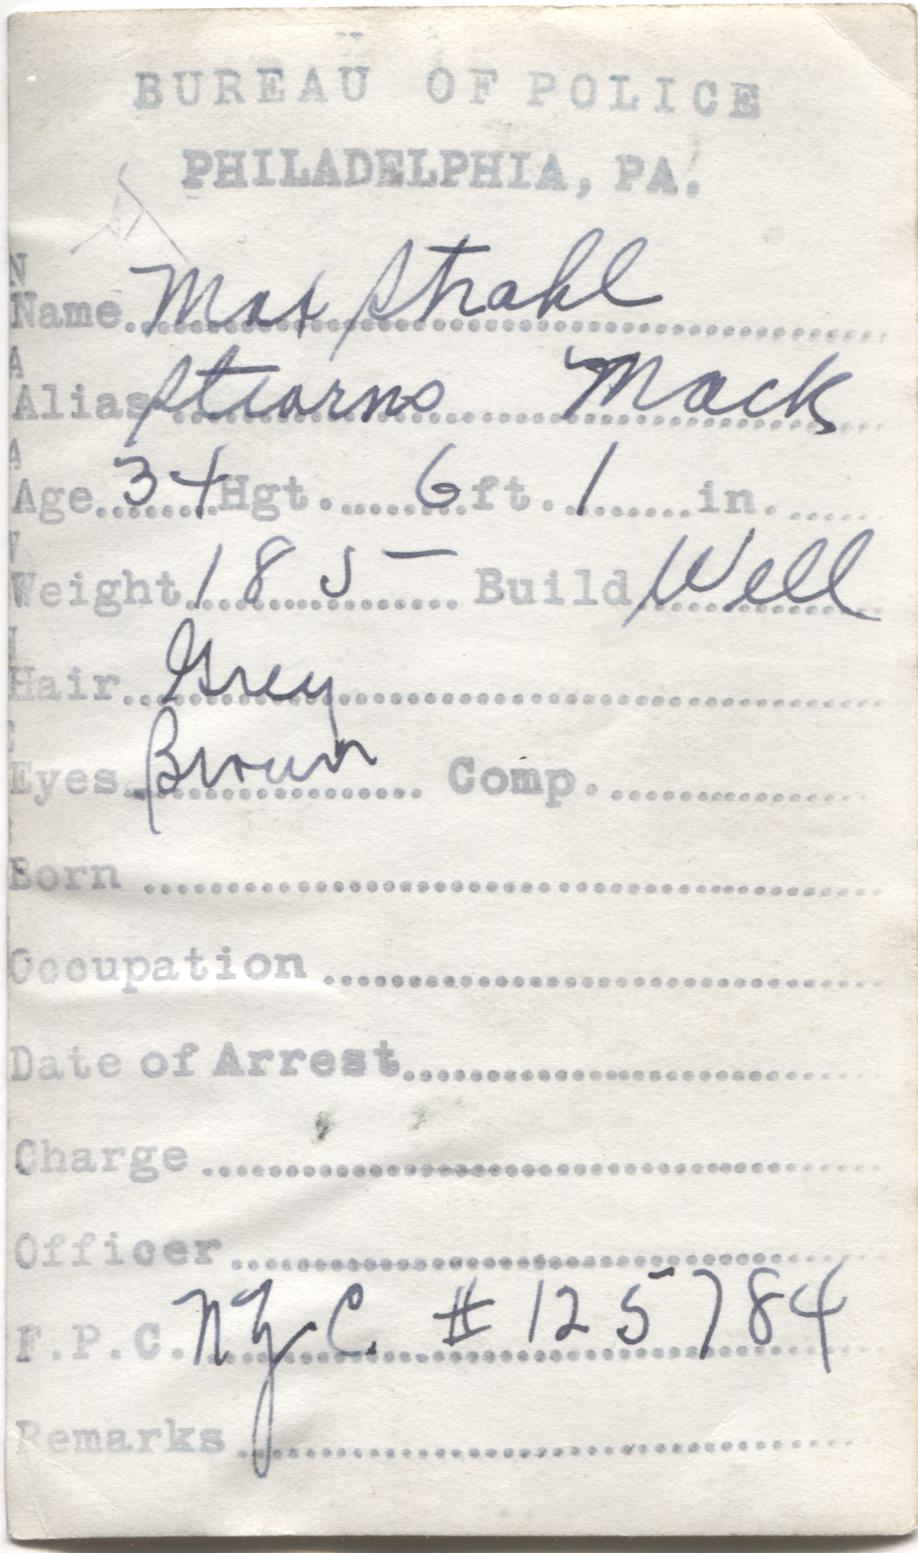 BUREAU OF POLICE
PHILADELPHIA, PA.
N
Name Max Strahl
A
Alias Stearns Mack
A
Age 34 Hgt. 6 ft. 1 in.
W
Weight 185 — Build Well
H
Hair Grey
E
Eyes Brown Comp.
Born
Occupation
Date of Arrest
Charge
Officer
F.P.C. NYC. # 125784
Remarks